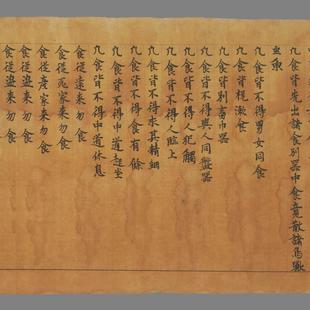 凡食皆先出諸食別器中食竟散諸鳥獸
虫魚
凡食皆不得男女同食
凡食皆漱食
凡食皆別畜巾器
凡食皆不得與人同盤器
凡食皆不得人犯觸
凡食皆不得人臨上
凡食皆不得求其精細
凡食皆不得食有餘
凡食皆不得中道起坐
凡食皆不得中道休息
食從遠來勿食
食從死家來勿食
食從產家來勿食
食從盜來勿食
食從來勿食